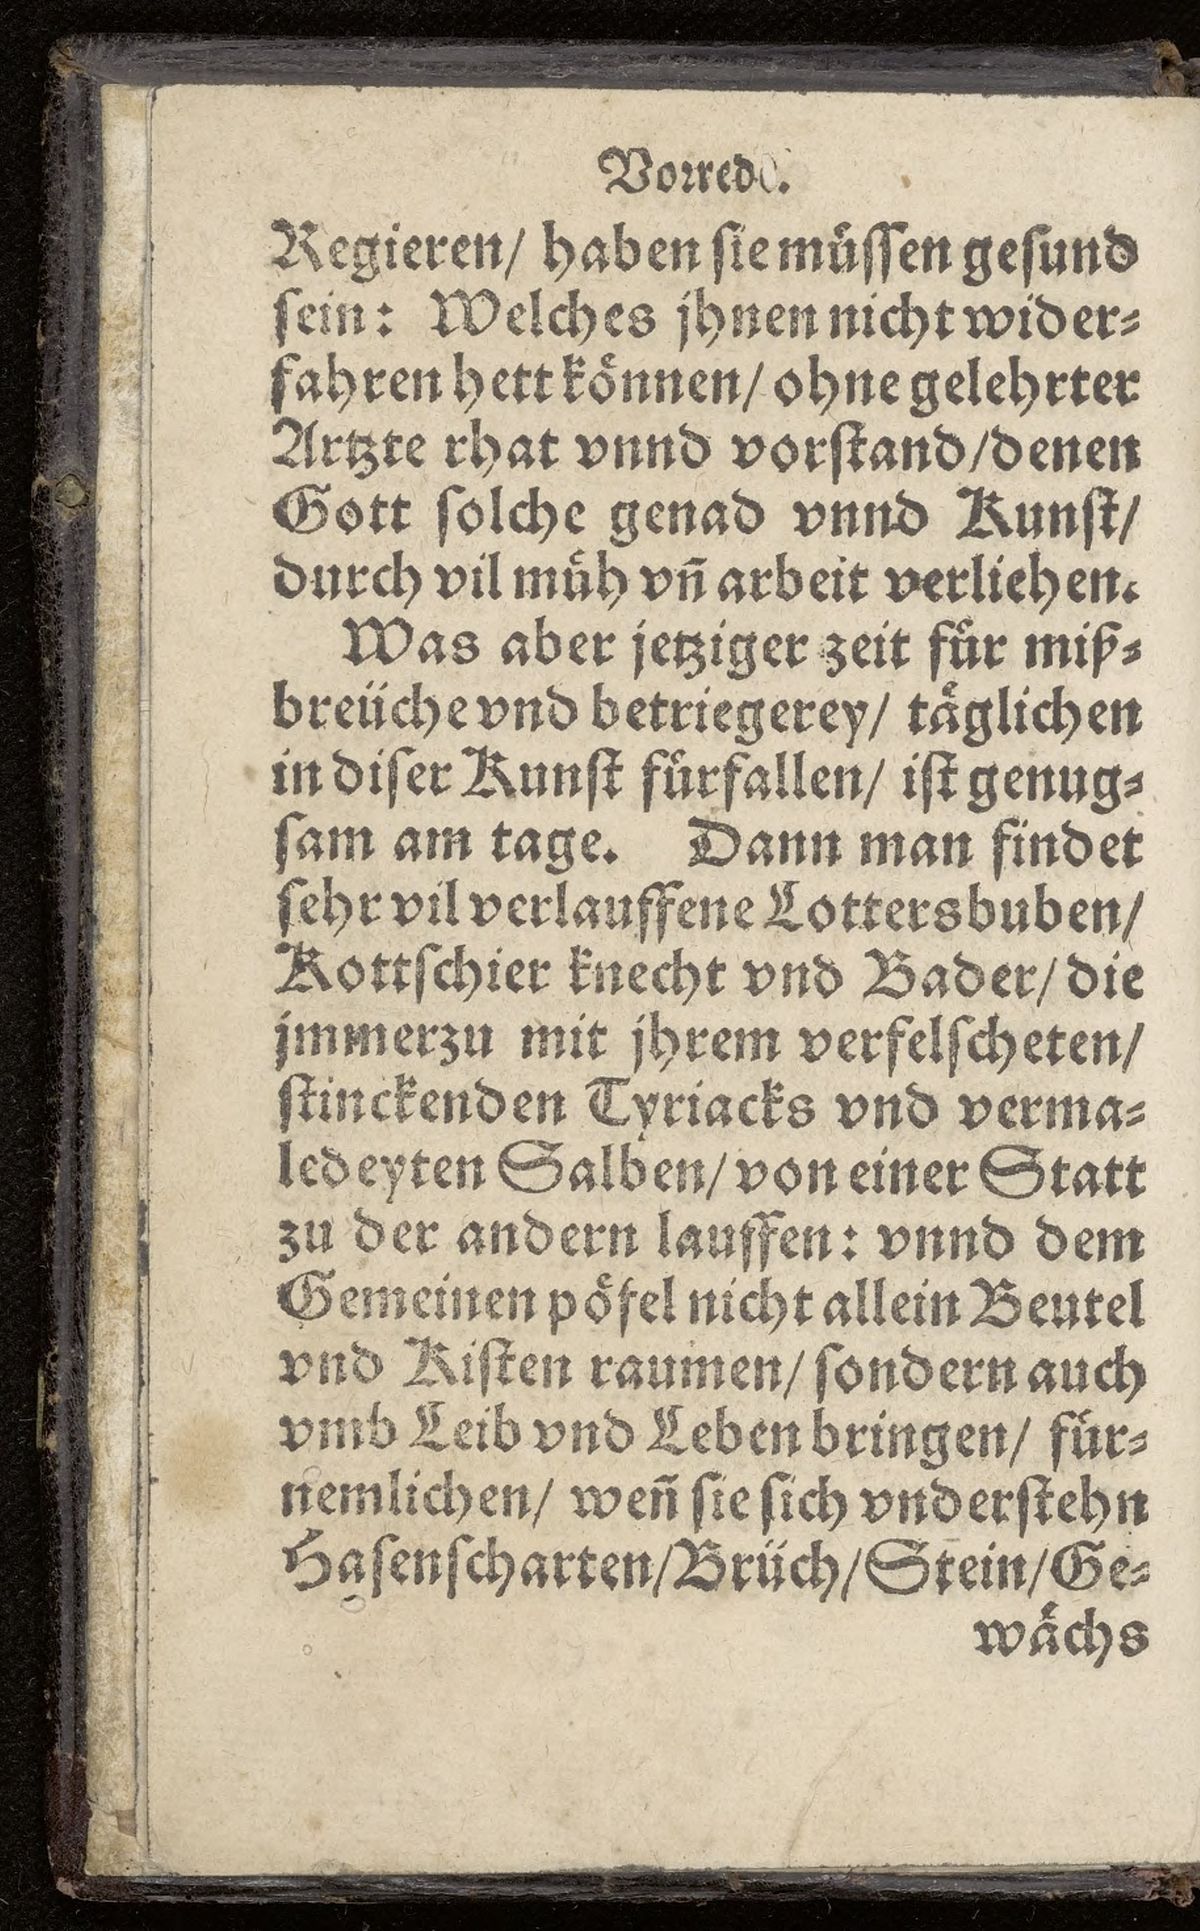 Vorred.
Regieren/ haben sie müssen gesund
sein: Welches jhnen nicht wider⸗
fahren hett können/ ohne gelehrter
Artzte rhat vnnd vorstand/ denen
Gott solche genad vnnd Kunst/
durch vil müh vn̄ arbeit verliehen.
Was aber jetziger zeit für miß⸗
breüche vnd betriegerey/ täglichen
in diser Kunst fürfallen/ ist genug⸗
sam am tage. Dann man findet
sehr vil verlauffene Lottersbuben/
Kottschier knecht vnd Bader/ die
jmmerzu mit jhrem verfelscheten/
stinckenden Tyriacks vnd verma⸗
ledeyten Salben/ von einer Statt
zu der andern lauffen: vnnd dem
Gemeinen pöfel nicht allein Beutel
vnd Kisten raumen/ sondern auch
vmb Leib vnd Leben bringen/ für⸗
nemlichen/ wen̄ sie sich vnderstehn
Hasenscharten/ Brüch/ Stein/ Ge⸗
wächs